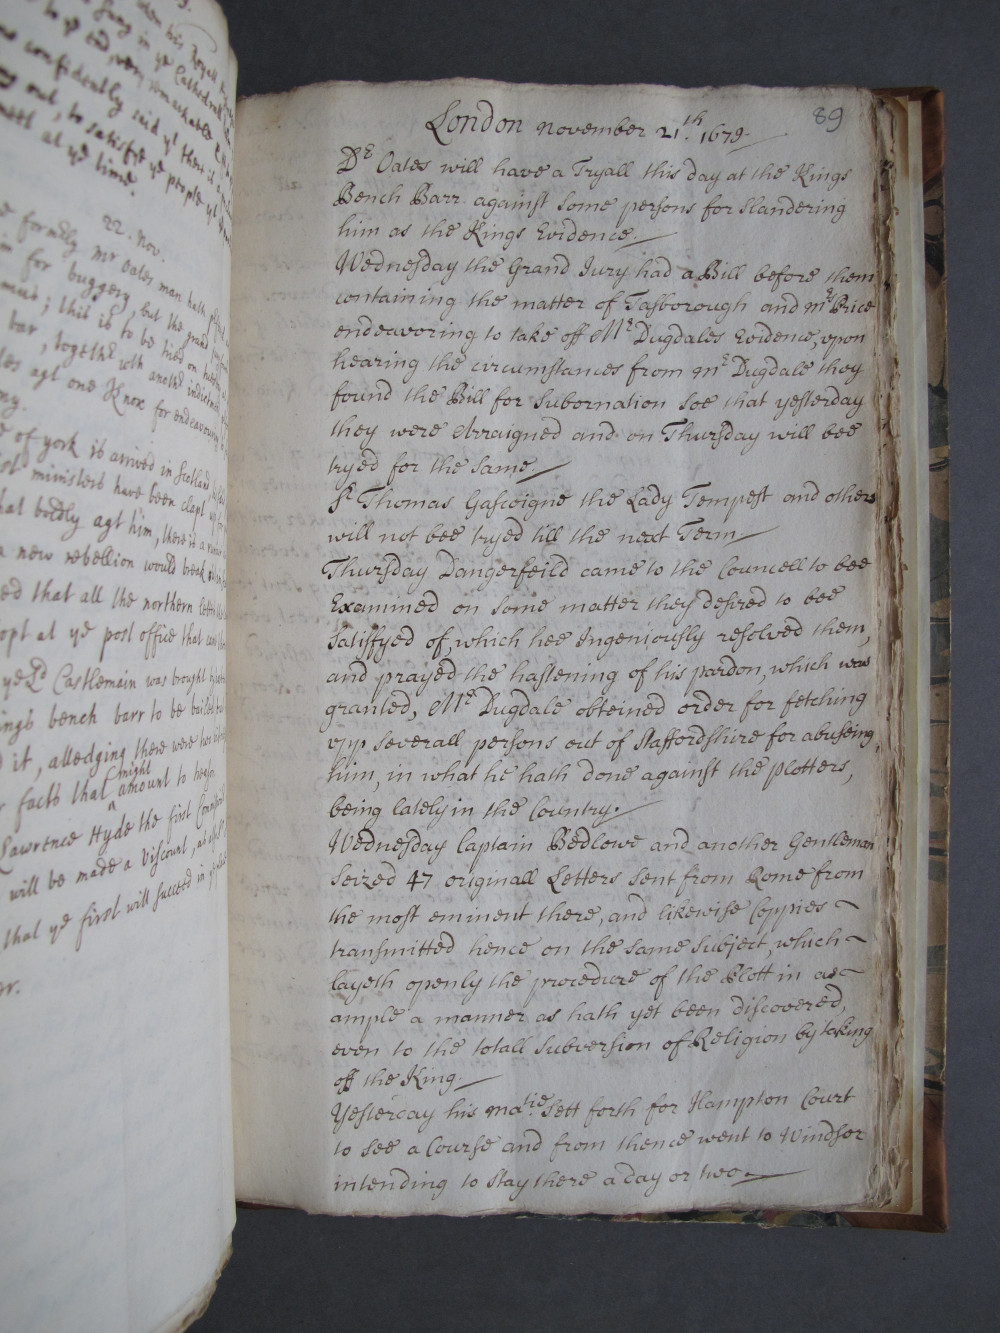 his Royall
sung in ye Cathedrall
to ye end, very remarkable
confidently said yt there is
out, to satisfye ye people yt
at ye time.
22. Nov.
formdly mr Oates man hath
for buggery, but the grand
; this is to be tried on
bar, togethr wth anothr indictmt
agt one Knox for endeavouring
of york is arrived in Scotland,
ministers have been clapt up
hat bodly agt him, there is a
new rebellion would break
ed that all the northern letts
opt at ye post office that
ye Ld Castlemain was brought
ings bench barr to be bailed
it, alledging there were two
facts that might amount to
Lawrence Hyde the first
will be made a Viscount,
that ye first will succeed in
89
London November 21.th 1679
Dr Oates will have a Tryall this day at the Kings
Bench Barr against some persons for slandering
him as the Kings Evidence.
Wednesday the Grand Jury had a Bill before them
containing the matter of Tasborough and mr Price
endeavoring to take off Mr Dugdales Evidence, vpon
hearing the circumstances from mr Dugdale they
found the Bill for subornation soe that yesterday
they were Arraigned and on Thursday will bee
tryed for the same.
Sr Thomas Gascoigne the Lady Tempest and others
will not bee tryed till the next Term
Thursday Dangerfeild came to the Councell to bee
Examined on some matter they desired to bee
satissfyed of, which hee Ingeniously resolved them,
and prayed the hastening of his pardon, which was
granted, Mr Dugdale obteined order for fetching
vpp severall persons out of Staffordshire for abuseing
him, in what he hath done against the plotters,
being lately in the Country.
Wednesday Captain Bedlowe and another Gentleman
seized 47 originall Letters sent from Rome from
the most eminent there, and likewise Coppies
transmitted hence on the same subject, which
layeth openly the procedure of the Plott in as
ample a manner as hath yet been discovered,
even to the totall subversion of Religion by taking
off the King.
Yesterday his matie. sett forth for Hampton Court
to see a Course and from thence went to Windsor
intending to stay there a day or two